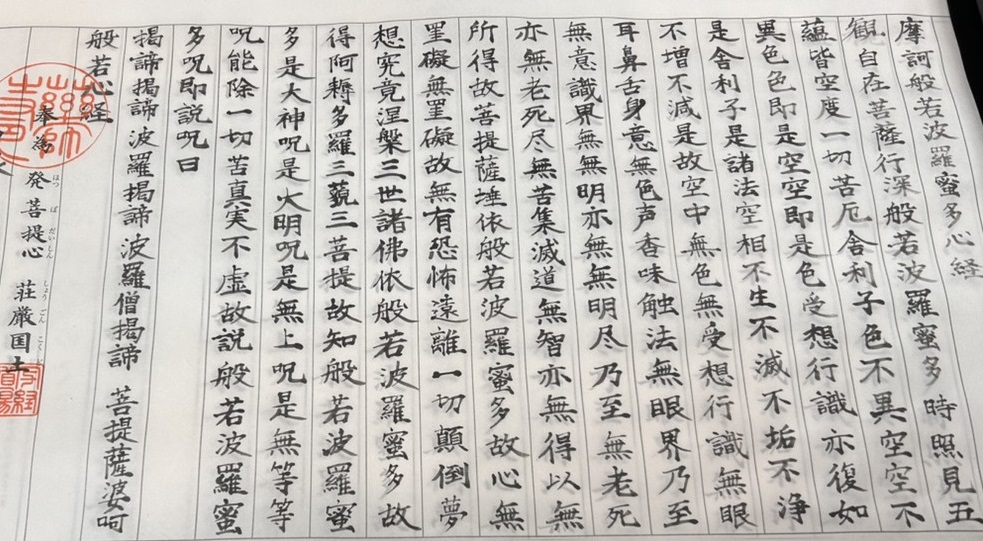 摩訶般若波羅蜜多心経
観自在菩薩行深般若波羅蜜多時照見五
蘊皆空度一切苦厄舎利子色不異空空不
異色色即是空空即是色受想行識亦復如
是舎利子是諸法空相不生不滅不垢不浄
不増不減是故空中無色無受想行識無眼
耳鼻舌身意無色声香味触法無眼界乃至
無意識界無無明亦無無明尽乃至無老死
亦無老死尽無苦集滅道無智亦無得以無
所得故菩提薩埵依般若波羅蜜多故心無
罣礙無罣礙故無有恐怖遠離一切顛倒夢
想究竟涅槃三世諸佛依般若波羅蜜多故
得阿耨多羅三藐三菩提故知般若波羅蜜
多是大神呪是大明呪是無上呪是無等等
呪能除一切苦真実不虚故説般若波羅蜜
多呪即説呪曰
揭諦揭諦波羅揭諦 波羅僧揭諦 菩提薩婆呵
般若心経
奉為 発菩提心 荘厳国土
はつ ぼだいしん しょうごんこく